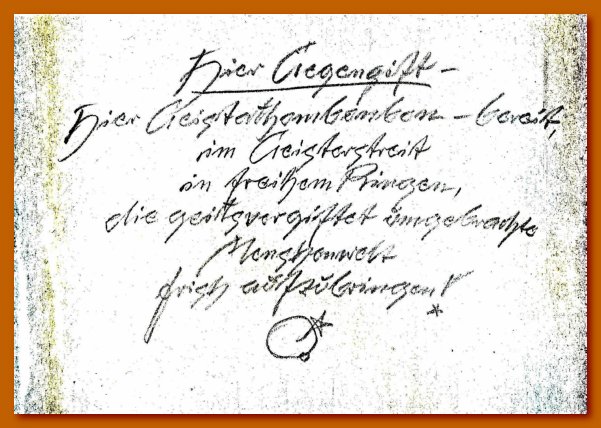 Hier Gegengift –
Hier – bereit,
im Geisterstreit
in freihem Ringen,
die geitsvergiftet umgebrachte
Menshenwelt
frish aufzubringen!